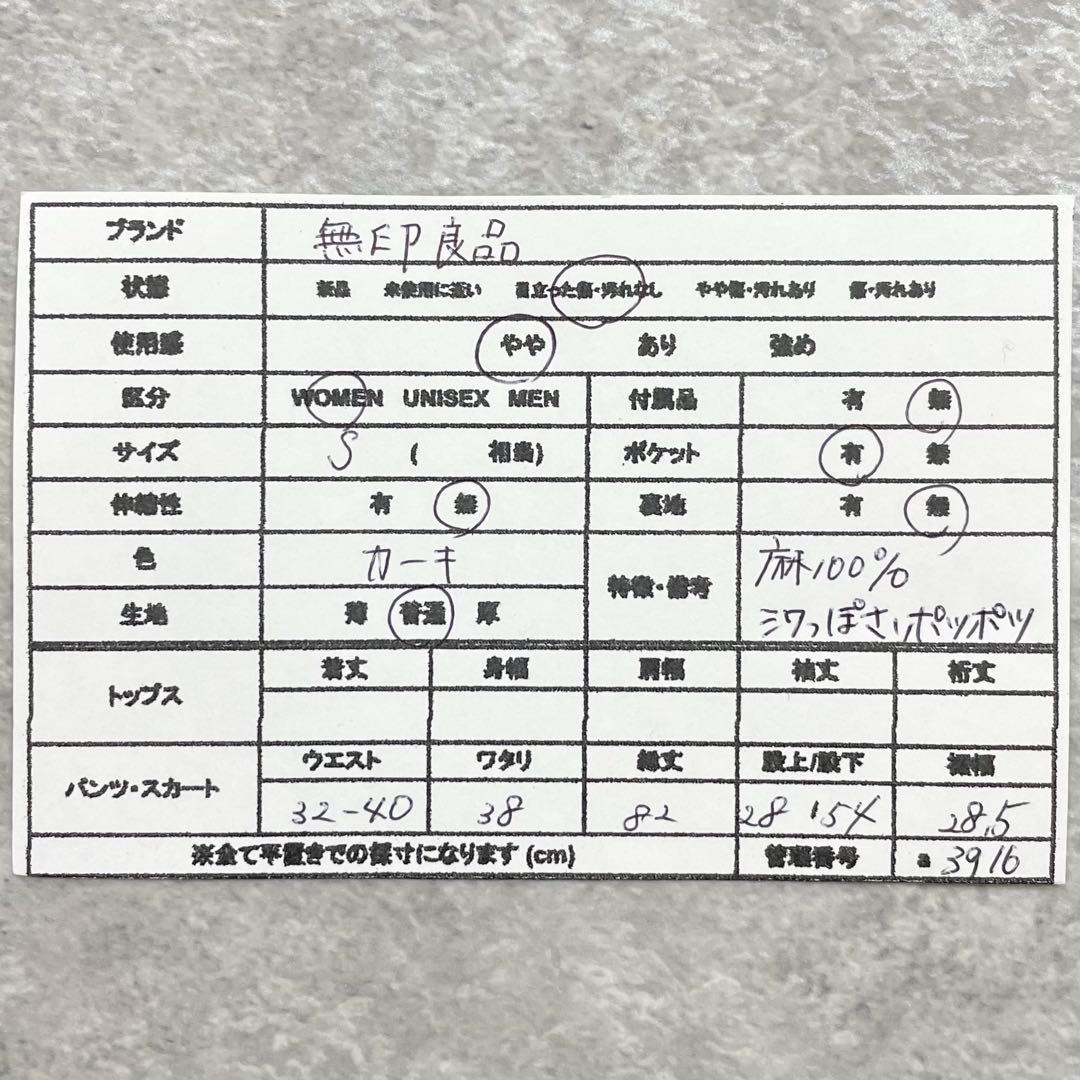 ブランド 無印良品
状態 新品 未使用に近い 目立った傷・汚れなし やや傷・汚れあり 傷・汚れあり
使用感 やや あり 強め
区分 WOMEN UNISEX MEN 付属品 有 無
サイズ S ( 相当) ポケット 有 無
伸縮性 有 無 裏地 有 無
色 カーキ 特徴・備考 麻100%
シワっぽさ、ポツポツ
生地 薄 普通 厚
トップス 着丈 身幅 肩幅 袖丈 裄丈
パンツ・スカート ウエスト ワタリ 総丈 股上/股下 裾幅
32-40 38 82 28 54 28.5
※全て平置きでの採寸になります(cm) 管理番号 a 3916